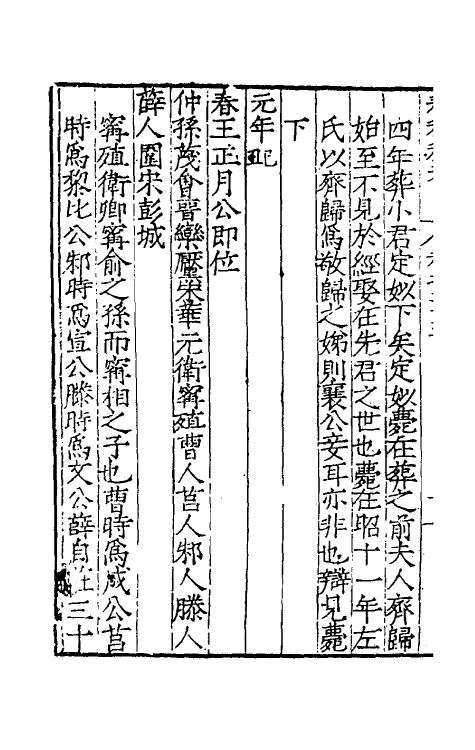 四年葬小君定姒下矣定姒薨在葬之前夫人齊歸
始至不見於經娶在先君之世也薨在昭十一年左
氏以齊歸爲敬歸之娣則襄公妾耳亦非也辯見薨
下
元年
春王正月公即位
仲孫蔑會晉欒黶宋華元衛寗殖曹人莒人邾人滕人
薛人圍宋彭城
寗殖衛卿寗俞之孫而寗相之子也曹時爲成公莒
時爲黎比公邾時爲宣公滕時爲文公薛自莊三十